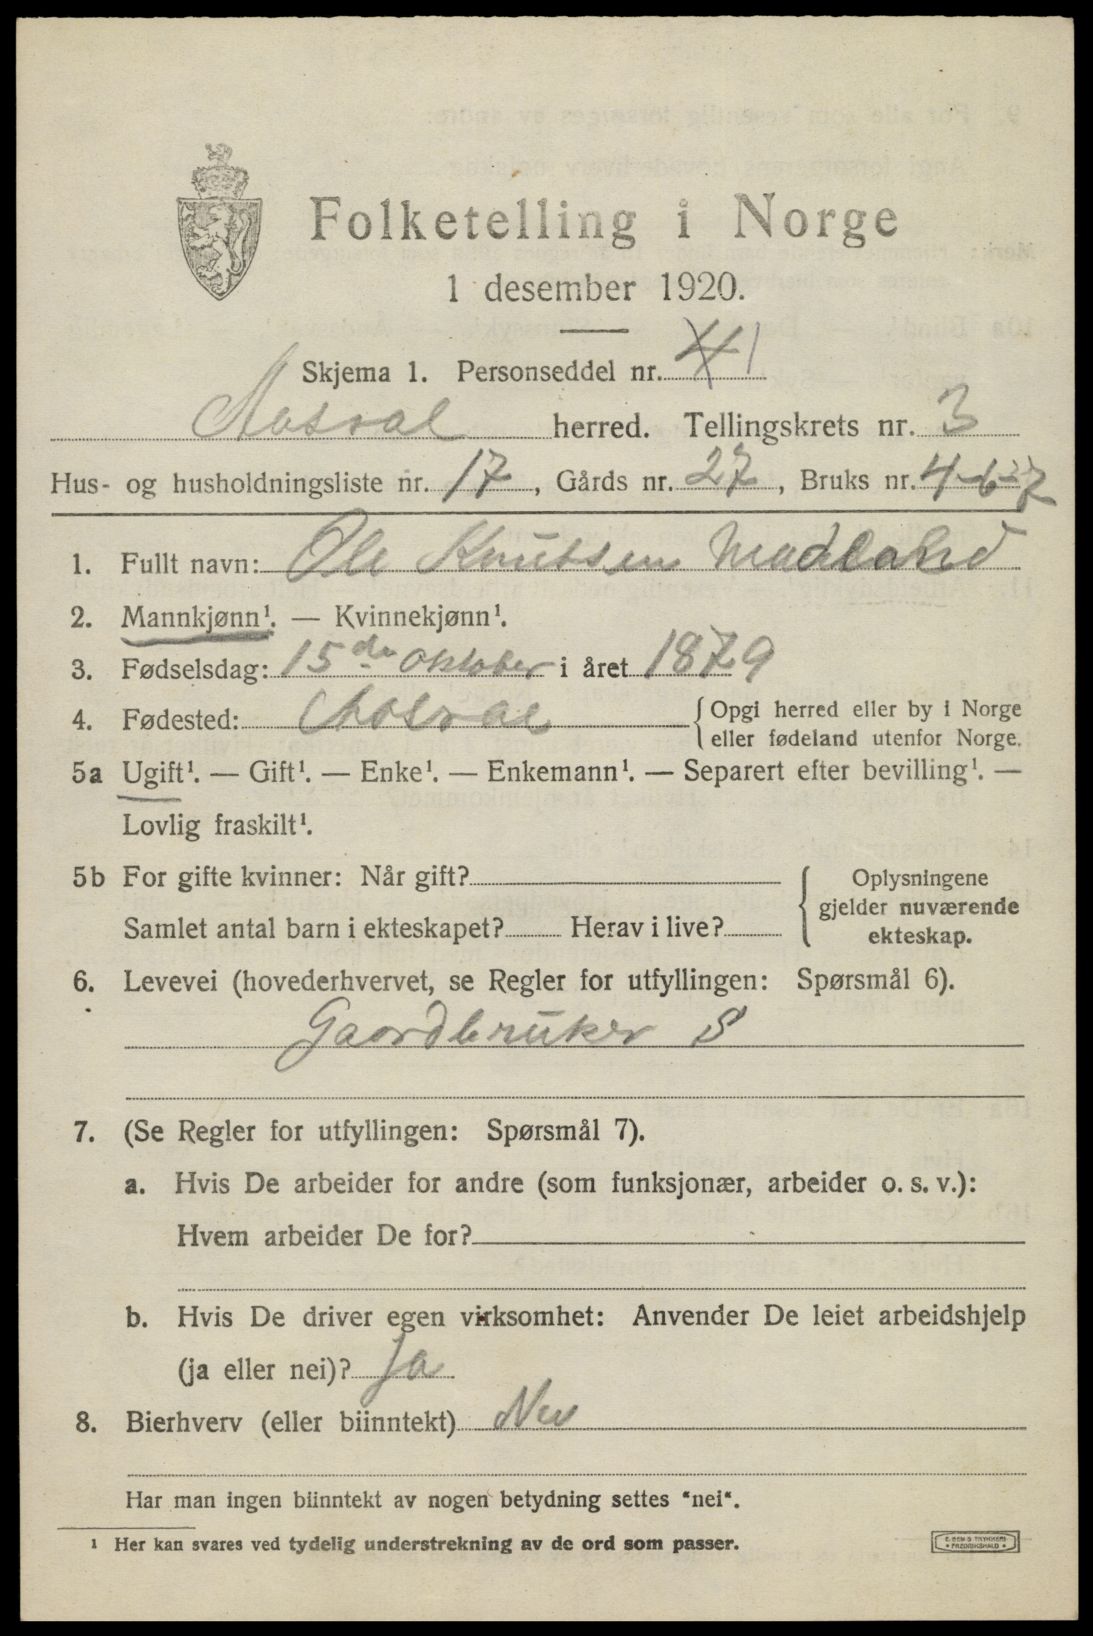 Folketelling i Norge
1 desember 1920.
Skjema 1. Personseddel nr. 41
Aasral herred. Tellingskrets nr. 3
Hus- og husholdningsliste nr. 17, Gårds nr. 27, Bruks nr. 4-6-7
1. Fullt navn: Ole Knutsen Madland
2. Mannkjønn¹. — Kvinnekjønn¹.
3. Fødselsdag: 15de oktober i året 1879
4. Fødested: Aasral { Opgi herred eller by i Norge
eller fødeland utenfor Norge.
5a Ugift¹. — Gift¹. — Enke¹. — Enkemann¹. — Separert efter bevilling¹. —
Lovlig fraskilt¹.
5b For gifte kvinner: Når gift?
Samlet antal barn i ekteskapet? Herav i live?
{ Oplysningene
gjelder nuværende
ekteskap.
6. Levevei (hovederhvervet, se Regler for utfyllingen: Spørsmål 6).
Gaardbruker S
7. (Se Regler for utfyllingen: Spørsmål 7).
a. Hvis De arbeider for andre (som funksjonær, arbeider o. s. v.):
Hvem arbeider De for?
b. Hvis De driver egen virksomhet: Anvender De leiet arbeidshjelp
(ja eller nei)? Ja
8. Bierhverv (eller biinntekt) Nei
Har man ingen biinntekt av nogen betydning settes "nei".
¹ Her kan svares ved tydelig understrekning av de ord som passer.